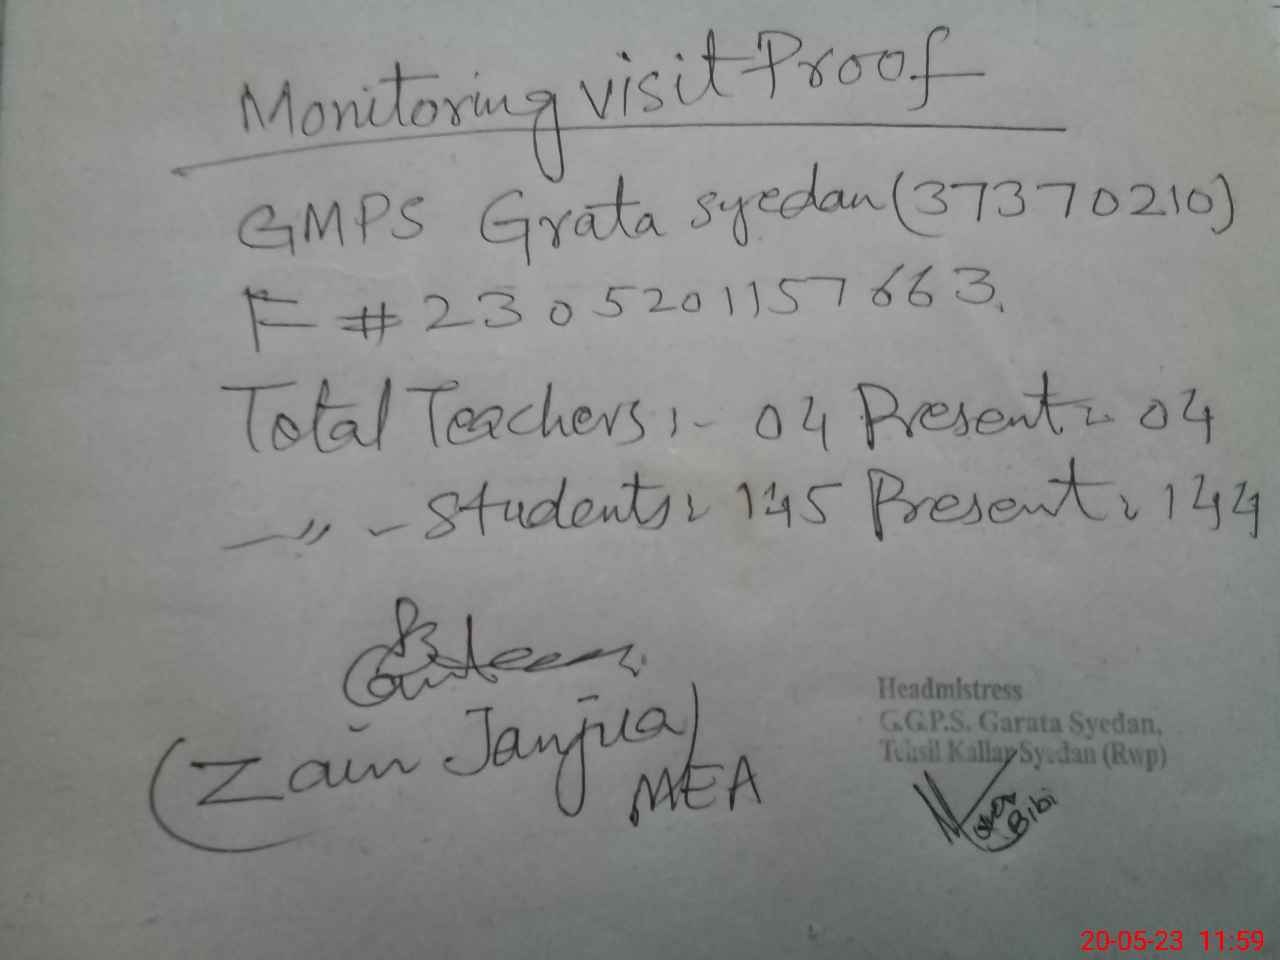 Monitoring visit Proof
GMPS Grata syedan (37370210)
F # 2305201157663.
Total Teachers :- 04 Present = 04
—〃— Students = 145 Present = 144
(Zain Janjua)
MEA
Headmistress
G.G.P.S. Garata Syedan,
Tehsil Kallar Syedan (Rwp)
Bibi
20-05-23 11:59